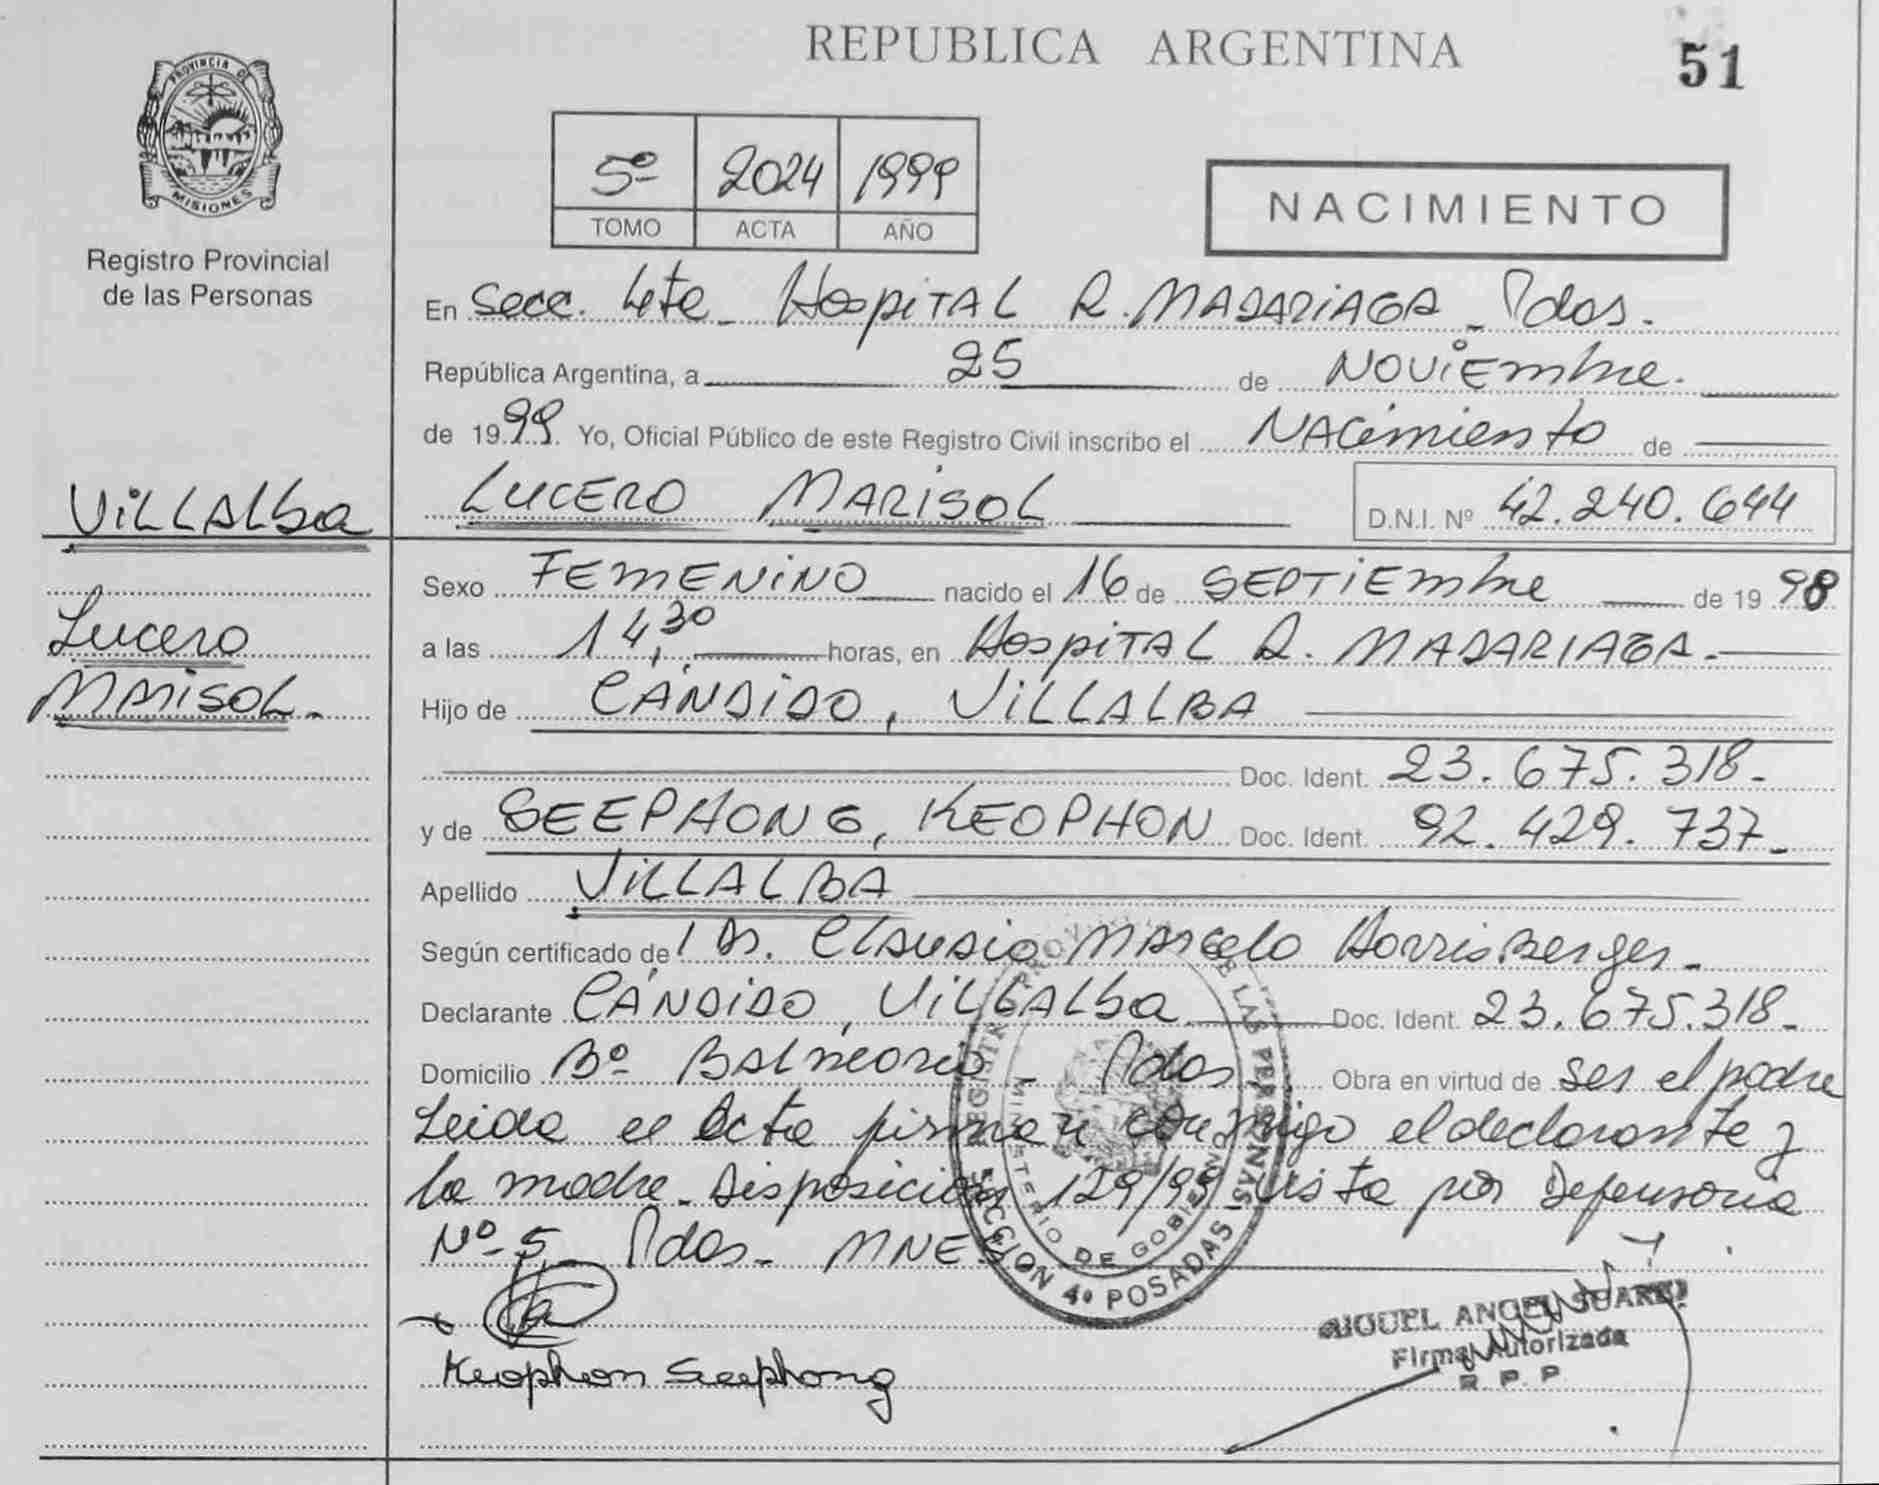 REPUBLICA ARGENTINA
51
PROVINCIA DE
MISIONES
Registro Provincial
de las Personas
5º 2024 1999
TOMO ACTA AÑO
NACIMIENTO
En Secc. 4ta - Hospital R. MADARIAGA - Pdas.
República Argentina, a 25 de Noviembre.
de 1999. Yo, Oficial Público de este Registro Civil inscribo el Nacimiento de
Villalba
LUCERO MARISOL
D.N.I. Nº 42.240.644
Lucero
Marisol.-
Sexo FEMENINO nacido el 16 de SEPTIEmbre de 1998
a las 14,30 horas, en Hospital R. MADARIAGA.-
Hijo de CÁNDIDO, VILLALBA
Doc. Ident. 23.675.318.-
y de SEEPHONG, KEOPHON Doc. Ident. 92.429.737.-
Apellido VILLALBA
Según certificado de Dr. Claudio Marcelo Horrisberger.-
Declarante CÁNDIDO, Villalba Doc. Ident. 23.675.318.-
Domicilio Bº Balneario - Pdas. Obra en virtud de ser el padre
Leida el Acta firman conmigo el declarante y
la madre. Disposición 129/99 vista por Defensoria
Nº 5 Pdas. MNES
REGISTRO PROVINCIAL DE LAS PERSONAS
MINISTERIO DE GOBIERNO
SECCION 4º POSADAS
Keophon Seephong
MIGUEL ANGEL SUAREZ
Firma Autorizada
R. P. P.